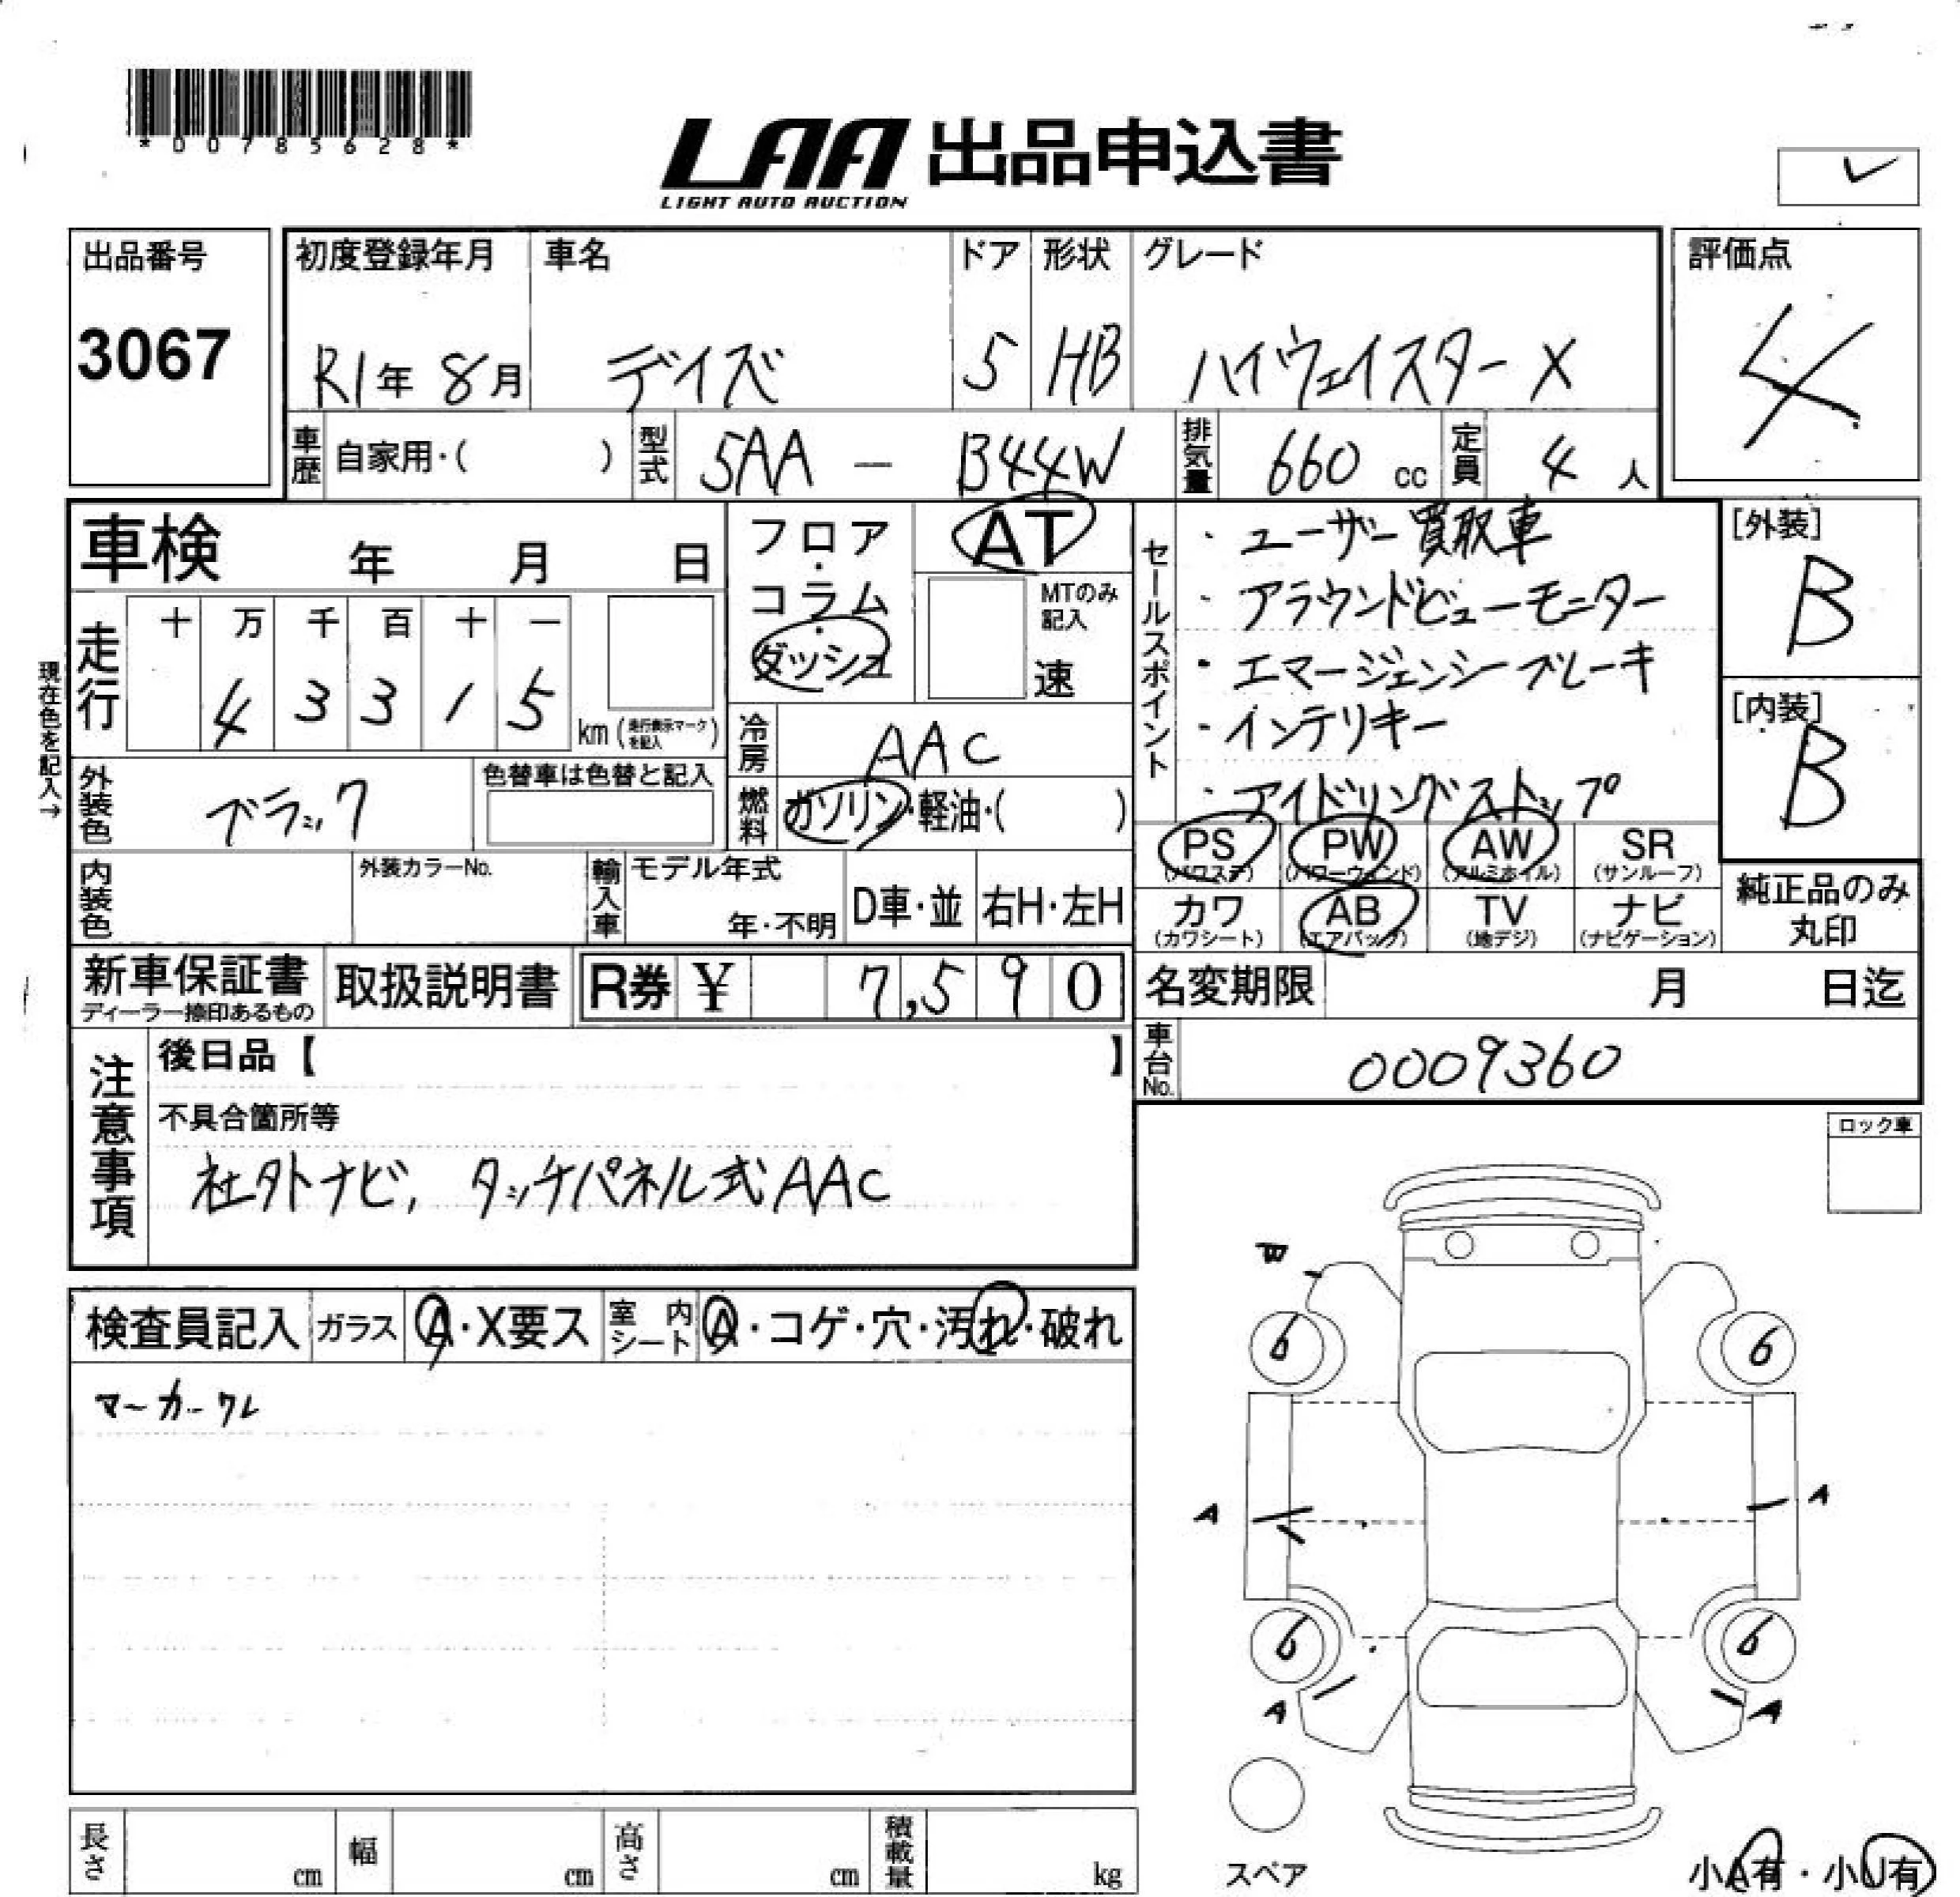 *00785628*
LAA 出品申込書
LIGHT AUTO AUCTION
出品番号
3067
初度登録年月
R1年 8月
車名
デイズ
ドア
5
形状
HB
グレード
ハイウェイスターX
評価点
4
車歴 自家用・( )
型式 5AA - B44W
排気量 660 cc
定員 4 人
車検 年 月 日
走行
十 万 千 百 十 一
4 3 3 1 5
km (走行表示マークを記入)
現在色を記入→
外装色 ブラック
色替車は色替と記入
内装色
外装カラーNo.
フロア・コラム・ダッシュ
AT
MTのみ記入
速
冷房 AAC
燃料 ガソリン・軽油・( )
輸入車
モデル年式
年・不明
D車・並
右H・左H
セールスポイント
・ユーザー買取車
・アラウンドビューモニター
・エマージェンシーブレーキ
・インテリキー
・アイドリングストップ
[外装]
B
[内装]
B
PS (パワステ)
PW (パワーウィンド)
AW (アルミホイル)
SR (サンルーフ)
カワ (カワシート)
AB (エアバッグ)
TV (地デジ)
ナビ (ナビゲーション)
純正品のみ
丸印
新車保証書
ディーラー捺印あるもの
取扱説明書
R券 ¥ 7,590
名変期限 月 日迄
車台No. 0009360
注意事項
後日品【 】
不具合箇所等
社外ナビ, タッチパネル式AAC
ロック車
検査員記入
ガラス A・X要ス
室内シート A・コゲ・穴・汚れ・破れ
マーカークレ
W
6
6
A
A
6
6
A
A
スペア
小A有・小U有
長さ cm
幅 cm
高さ cm
積載量 kg